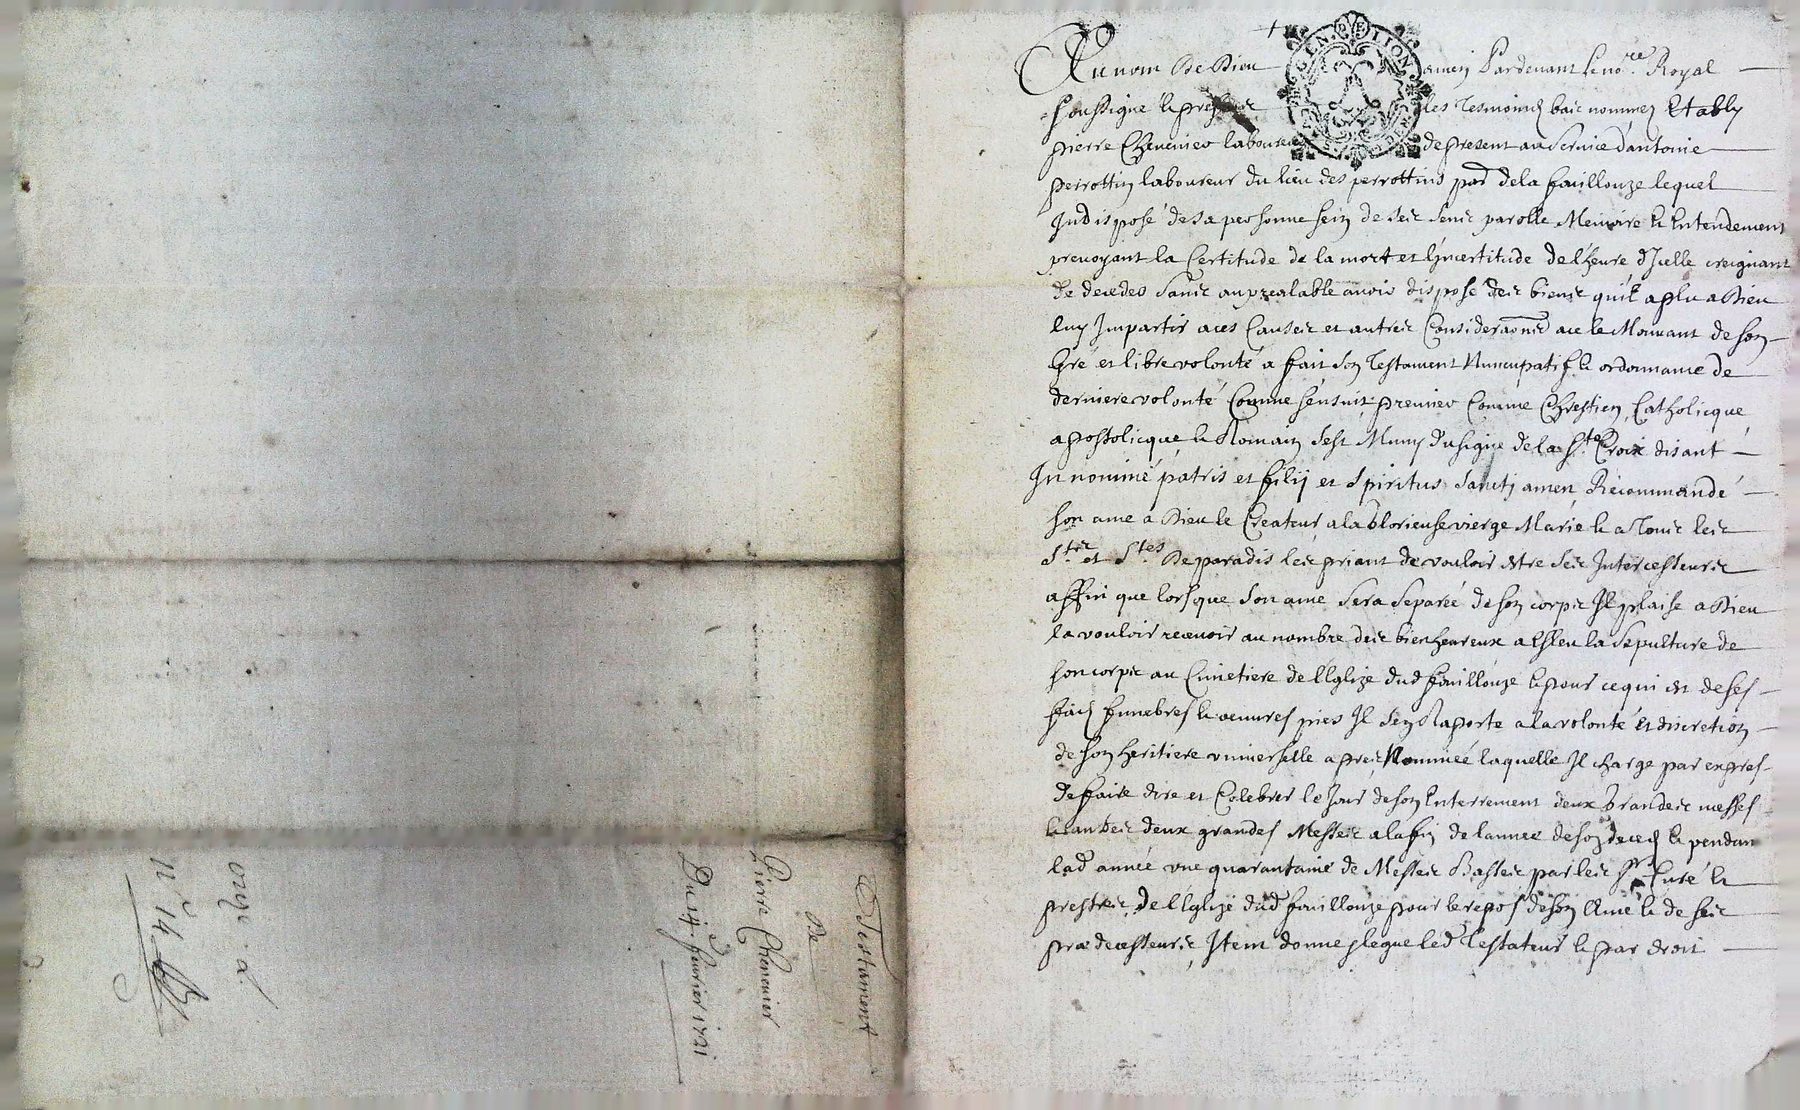 Au nom de Dieu amen Pardevant le no.re Royal
soussigné & present & les tesmoins bas nommez Estably
pierre Chenevier laboureur de present au service d'antoine
perrottin laboureur du lieu des perrottins par.se de la fouillouze lequel
Indisposé de sa personne sein de ses sens parolle Memoire & Entendement
prevoyant la Certitude de la mort et l'incertitude de l'heure d'Icelle creignant
de deceder sans au prealable avoir disposé des biens qu'il a plu a Dieu
luy Impartir a ces Causes et autres Considera͠ons a ce le Mouvant de son
Gré et libre volonté a fait son Testament Nuncupatif & ordonnance de
derniere volonté Comme s'ensuit, premier Comme Chrestien, Catholicque,
apostolicque & Romain s'est Muny du signe de la S.te Croix disant
In nomine patris et filij et spiritus sancti amen, Recommandé
son ame a Dieu le Createur, a la Glorieuse vierge Marie & a Tous les
S.ts et S.tes De paradis les priant de vouloir estre ses Intercesseurs
affin que lorsque son ame sera separée de son corps Il plaise a Dieu
la vouloir recevoir au nombre des bienheureux a Esleu la sepulture de
son corps au Cimetiere de l'Eglize dud fouillouze & pour ce qui est de ses
fraix funebres & œuvres pies Il s'en Raporte a la volonté et discretion
de son heritiere universelle apres Nommée laquelle Il charge par expres
de faire dire et Celebrer le Jour de son Enterrement deux Grandes messes
deux grandes Messes a la fin de l'année de son deceds & pendan
lad année une quarantaine de Messes Basses par les S.r Curé &
prestres de l'Eglize dud fouillouze pour le repos de son Ame & de ses
predecesseurs, Item donne & legue led Testateur & par droit
Testament
De
Pierre Chenevier
Du 14.e fevrier 1721
n° 14